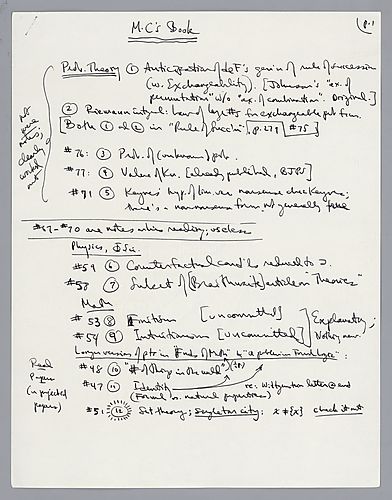 M.C.'s Book
p.1
Prob. Theory ① Anticipation of deF's genin of rule of succession
(w. Exchangeability). [Johnson's "ex. of
permutation" w/o "ex. of combination". Original]
② Riemann integral: Law of large #s for exchangeable prob fns.
Both ① & ② in "Rule of Succ'n": p.279 #75
not
mere
notes,
clearly
worked
out
#76: ③ Prob. of (unknown) prob.
#77: ④ Value of Kn. [already published, BJPS]
#91 ⑤ Keynes' hyp. of lim. var. nonsense
there's a nonsense form, not generally false
#57-#70 are notes when reading, useless
Physics, Φ Sci.
#59 ⑥ Counterfactual cond'ls reduced to ⊃.
#58 ⑦ Subject of (Braithwaite) article on "Theories"
Math
#53 ⑧ Finitism [uncommitted]
#54 ⑨ Intuitionism [uncommitted]
Explanatory,
Nothing new.
Longer version of ptr in "Fnds of Math" & "a problem in Formal Logic":
#48 ⑩ # of things in the world
#47 ⑪ Identity
re: Wittgenstein letter
(Formal vs. natural properties)
Real
Papers
(or rejected
papers)
#51 ⑫ Set theory; singleton city: x ≠ {x} check it out